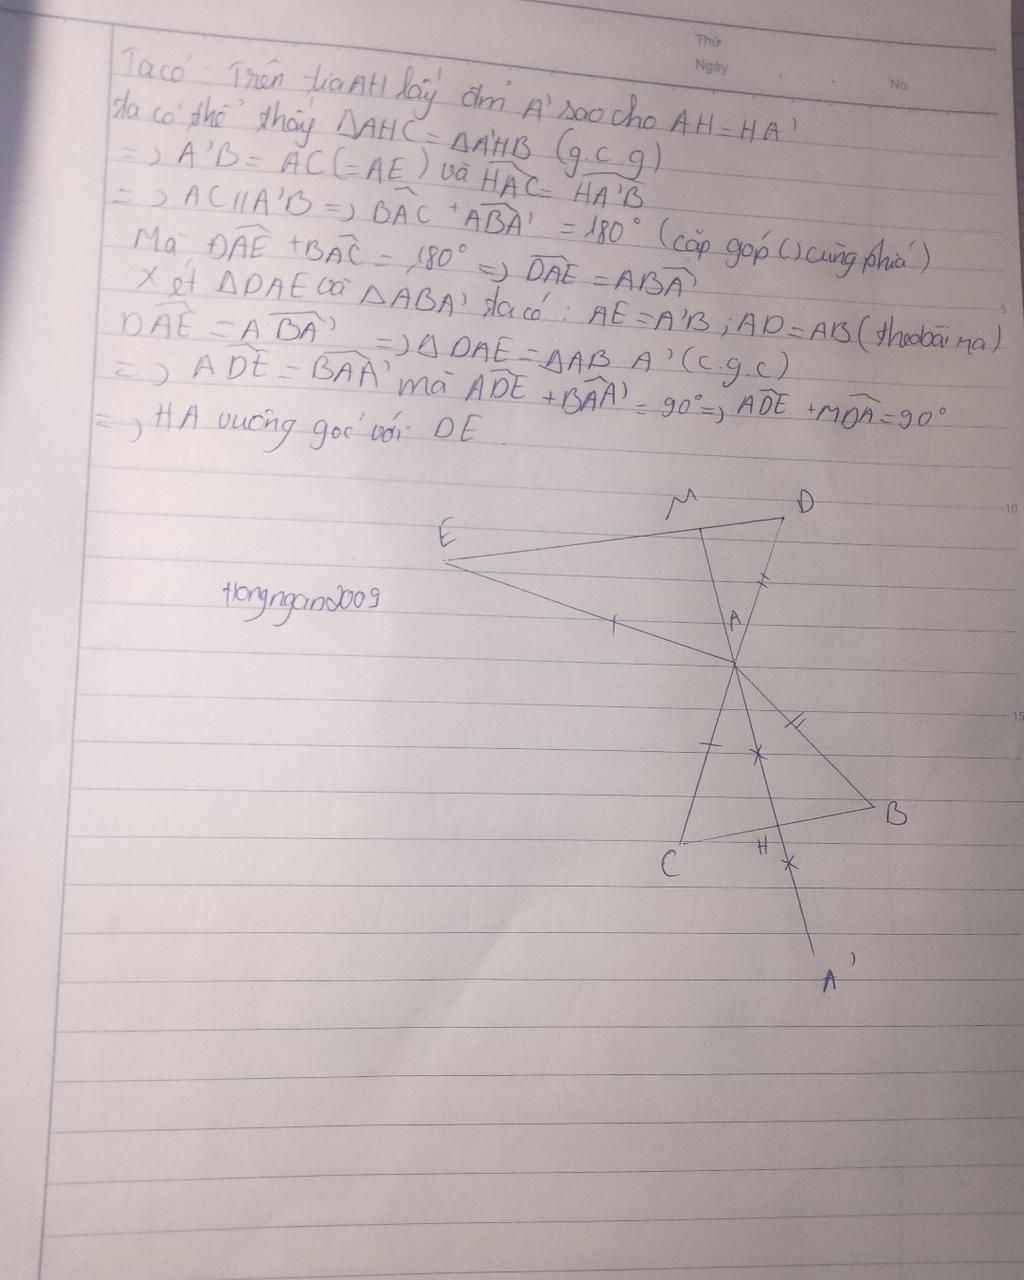 Thứ
Ngày . . No.
Ta có Trên tia AH lấy đm' A' sao cho AH = HA'
ta có thể thấy ΔAHC = ΔA'HB (g.c g)
=> A'B = AC (= AE) và HAC = HA'B
=> AC // A'B => BAC + ABA' = 180° (cặp góp () cùng phía)
Mà DAE + BAC = 180° => DAE = ABA'
Xét ΔDAE và ΔABA' ta có : AE = A'B ; AD = AB (theo bài ra)
DAE = ABA' => ΔDAE = ΔABA' (c.g.c)
=> ADE = BAA' mà ADE + BAA' = 90° => ADE + MDA = 90°
=> HA vuông góc với DE .
5
M D
10
E
Hongngan2009
A
15
B
H
C
A'